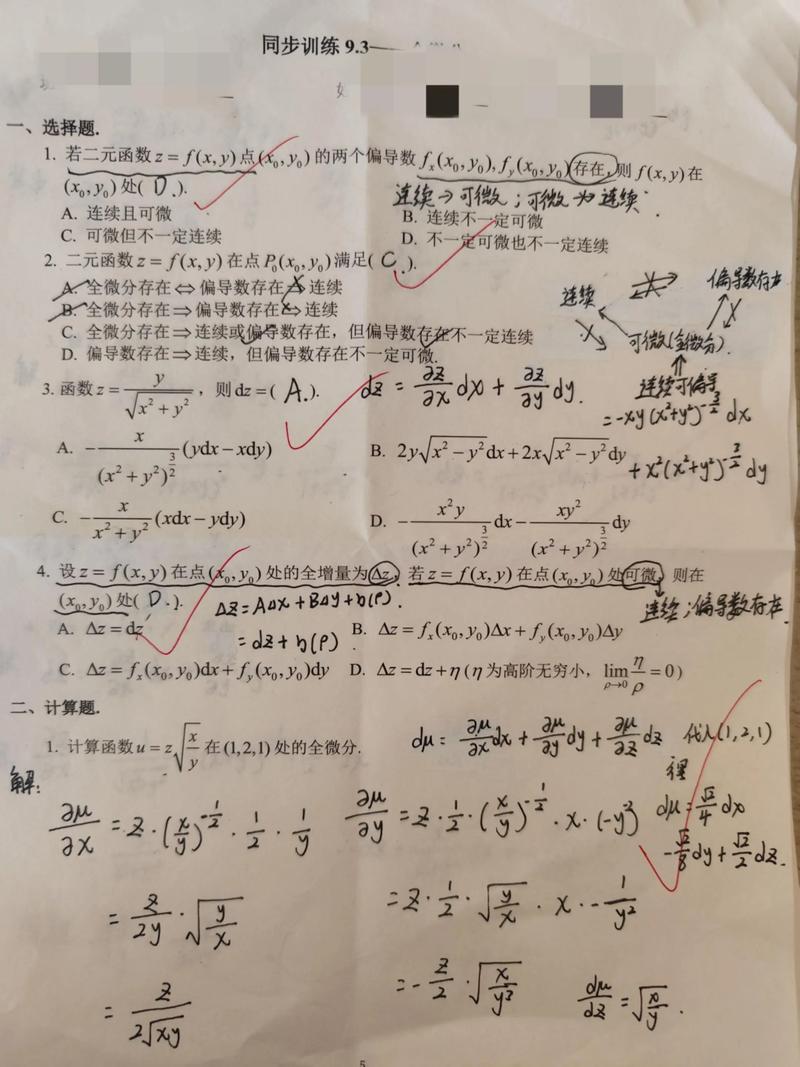 同步训练 9.3
一、选择题.
1. 若二元函数 z = f(x, y) 点 (x₀, y₀) 的两个偏导数 fₓ(x₀, y₀), f_y(x₀, y₀) 存在, 则 f(x, y) 在
(x₀, y₀) 处( D. ).
连续→可微；可微为连续
A. 连续且可微 B. 连续不一定可微
C. 可微但不一定连续 D. 不一定可微也不一定连续
2. 二元函数 z = f(x, y) 在点 P₀(x₀, y₀) 满足( C. ).
A. 全微分存在 ⇔ 偏导数存在 ⇒ 连续
B. 全微分存在 ⇒ 偏导数存在 ⇒ 连续
C. 全微分存在 ⇒ 连续或偏导数存在，但偏导数存在不一定连续
D. 偏导数存在 ⇒ 连续，但偏导数存在不一定可微.
连续 偏导数存在
可微(全微分).
连续可偏导
3. 函数 z = y/√(x² + y²)，则 dz = ( A. ).
dz = ∂z/∂x dx + ∂z/∂y dy.
= -xy(x²+y²)^(-3/2) dx
+ x²(x²+y²)^(-3/2) dy
A. -x/(x² + y²)^(3/2) (ydx - xdy) B. 2y√(x² - y²)dx + 2x√(x² - y²)dy
C. -x/(x² + y²) (xdx - ydy) D. -x²y/(x² + y²)^(3/2) dx - xy²/(x² + y²)^(3/2) dy
4. 设 z = f(x, y) 在点 (x₀, y₀) 处的全增量为 Δz, 若 z = f(x, y) 在点 (x₀, y₀) 处可微, 则在
(x₀, y₀) 处( D. ).
Δz = AΔx + BΔy + η(ρ).
= dz + η(ρ)
连续；偏导数存在.
A. Δz = dz B. Δz = fₓ(x₀, y₀)Δx + f_y(x₀, y₀)Δy
C. Δz = fₓ(x₀, y₀)dx + f_y(x₀, y₀)dy D. Δz = dz + η (η 为高阶无穷小， lim_(ρ→0) η/ρ = 0)
二、计算题.
1. 计算函数 u = z√(x/y) 在 (1, 2, 1) 处的全微分.
dμ = ∂μ/∂x dx + ∂μ/∂y dy + ∂μ/∂z dz 代入(1,2,1)
得
dμ = √2/4 dx
- √2/8 dy + √2/2 dz.
解：
∂μ/∂x = z · (x/y)^(-1/2) · 1/2 · 1/y
= z/2y · √(y/x)
= z/(2√xy)
∂μ/∂y = z · 1/2 · (x/y)^(-1/2) · x · (-y²)
= z · 1/2 · √(y/x) · x · -1/y²
= -z/2 · √(x/y²)
dμ/dz = √(x/y).
5